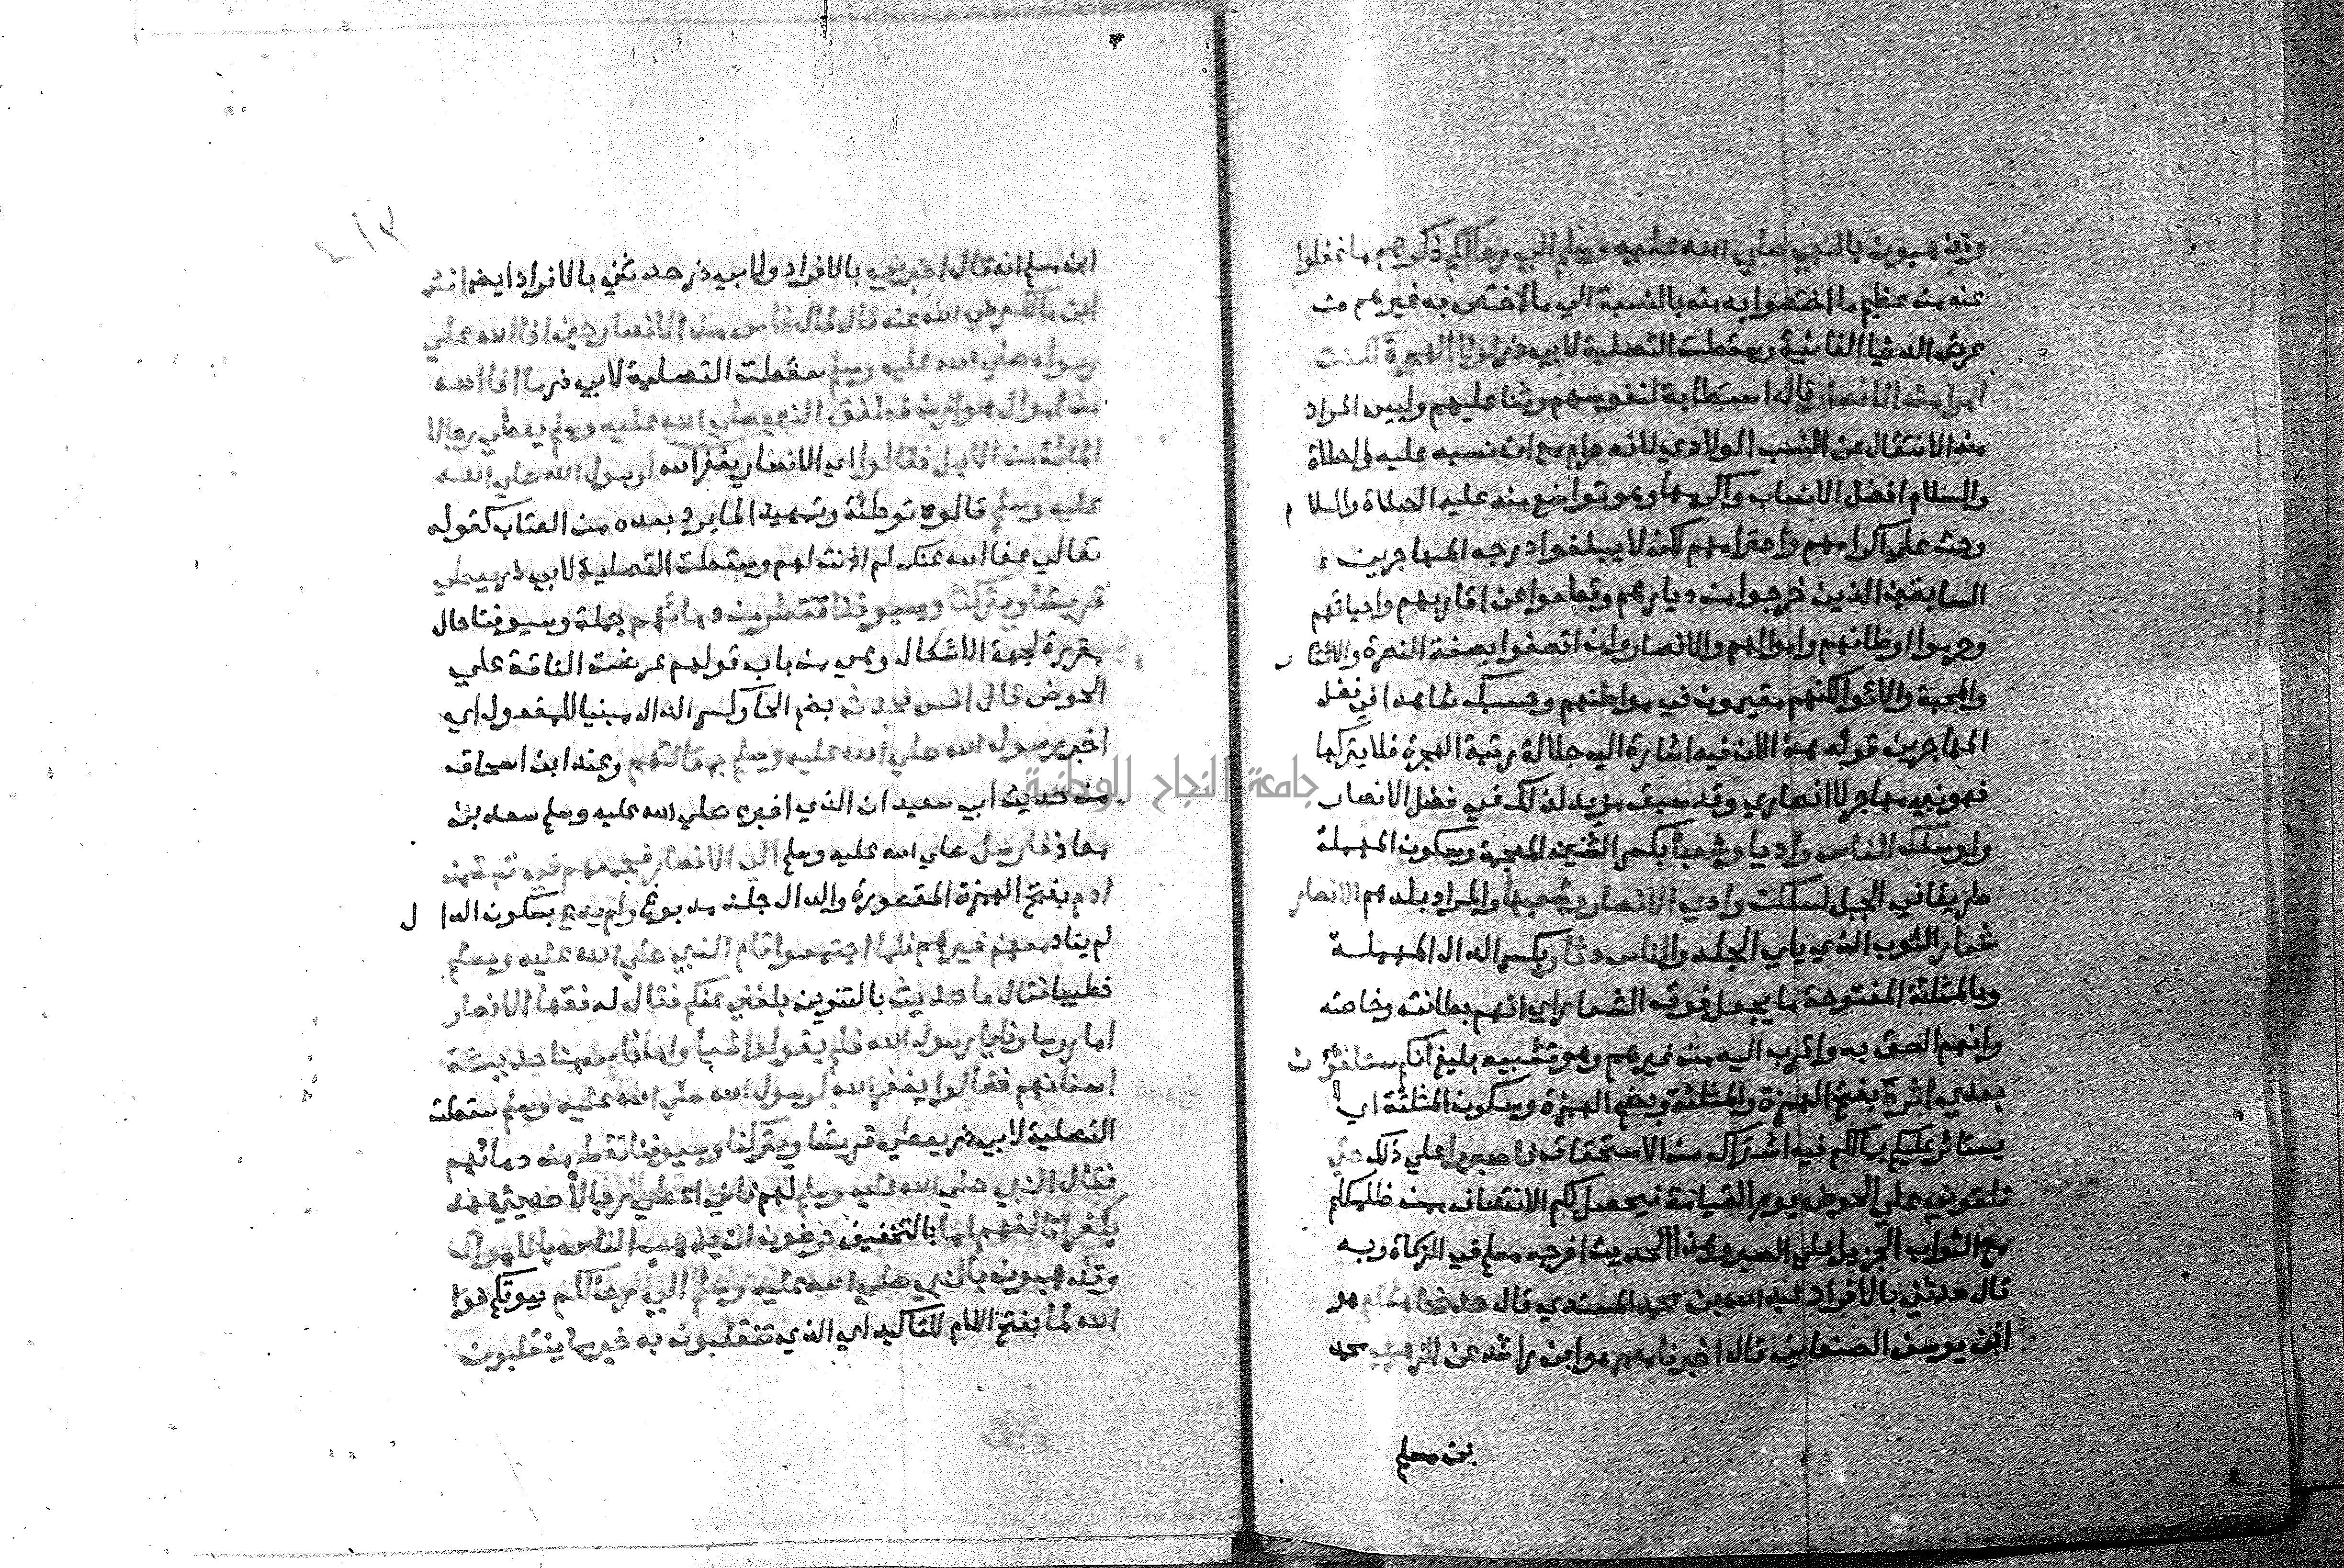 وتذهبون بالنبي صلي الله عليه وسلم الي رحالكم ذكرهم ما غفلوا
عنه من عظيم ما اختصوا به منه بالنسبة الي ما اختص به غيرهم من
عرض الدنيا الفانية وسقطت التصلية لابي ذر لولا الهجرة لكنت
امرا من الانصار قاله استطابة لنفوسهم وثنا عليهم وليس المراد
منه الانتقال عن النسب الولادي لانه حرام مع ان نسبه عليه الصلاة
والسلام افضل الانساب واكرمها وهو تواضع منه عليه الصلاة والسلام
وحث علي اكرامهم واحترامهم لكن لا يبلغوا درجه المهاجرين
السابقين الذين خرجوا من ديارهم وقطعوا عن اقاربهم واحبابهم
وحرموا اوطانهم واموالهم والانصار وان اتصفوا بصفة النصرة والايثار
والمحبة والايوا لكنهم مقيمون في مواطنهم وحسبك شاهدا في فضل
المهاجرين قوله هذا لان فيه اشارة الي جلالة رتبة الهجرة فلا يتركها
فهو نبي مهاجر لا انصاري وقد سبق مزيد لذلك في فضل الانصار
ولو سلك الناس واديا وشعبا بكسر الشين المعجمة وسكون المهملة
طريقا في الجبل لسلكت وادي الانصار وشعبها والمراد بلدهم الانصار
شعار الثوب الذي يلي الجلد والناس دثار بكسر الدال المهملة
وبالمثلثة المفتوحة ما يجعل فوق الشعار اي انهم بطانته وخاصته
وانهم الصق به واقرب اليه من غيرهم وهو تشبيه بليغ انكم ستلقون
بعدي اثرة بفتح الهمزة والمثلثة وبضم الهمزة وسكون المثلثة اي
يستاثر عليكم بمالكم فيه اشتراك من الاستحقاق فاصبروا علي ذلك حتي
تلقوني علي الحوض يوم القيامة فيحصل لكم الانتصاف ممن ظلمكم
مع الثواب الجزيل علي الصبر وهذا الحديث اخرجه مسلم في الزكاة وبه
قال حدثني بالافراد عبد الله بن محمد المسندي قال حدثنا هشام هو
ابن يوسف الصنعاني قال اخبرنا معمر هو ابن راشد عن الزهري محمد
بن مسلم
ابن مسلم انه قال اخبرني بالافراد ولابي ذر حدثني بالافراد ايضا انس
ابن مالك رضي الله عنه قال قال ناس من الانصار حين افا الله علي
رسوله صلي الله عليه وسلم سقطت التصلية لابي ذر ما افا الله
من اموال هوازن فطفق النبي صلي الله عليه وسلم يعطي رجالا
المائة من الابل فقالوا اي الانصار يغفر الله لرسول الله صلي الله
عليه وسلم قالوه توطئة وتمهيدا لما يرد بعده من العتاب كقوله
تعالي عفا الله عنك لم اذنت لهم وسقطت التصلية لابي ذر يعطي
قريشا ويتركنا وسيوفنا تقطر من دمائهم جملة وسيوفنا حال
مقررة لجهة الاشكال وهي من باب قولهم عرضت الناقة علي
الحوض قال انس فحدث بضم الحا وكسر الدال مبنيا للمفعول اي
اخبر رسول الله صلي الله عليه وسلم بمقالتهم وعند ابن اسحاق
من حديث ابي سعيد ان الذي اخبره صلي الله عليه وسلم سعد بن
معاذ فارسل صلي الله عليه وسلم الي الانصار فجمعهم في قبة من
ادم بفتح الهمزة المقصورة والدال جلد مدبوغ ولم يدع بسكون الدال
لم يناد معهم غيرهم فلما اجتمعوا قام النبي صلي الله عليه وسلم
خطيبا فقال ما حديث بالتنوين بلغني عنكم فقال له فقها الانصار
اما روسا ونا يا رسول الله فلم يقولوا شيأ واما ناس منا حديثة
اسنانهم فقالوا يغفر الله لرسول الله صلي الله عليه وسلم سقطت
التصلية لابي ذر يعطي قريشا ويتركنا وسيوفنا تقطر من دمائهم
فقال النبي صلي الله عليه وسلم لهم فاني اعطي رجالا حديثي عهد
بكفر اتالفهم اما بالتخفيف ترضون ان يذهب الناس بالاموال
وتذهبون بالنبي صلي الله عليه وسلم الي رحالكم بيوتكم فوا
الله لما بفتح اللام للتاكيد اي الذي تنقلبون به خير مما ينقلبون
جامعة النجاح الوطنية